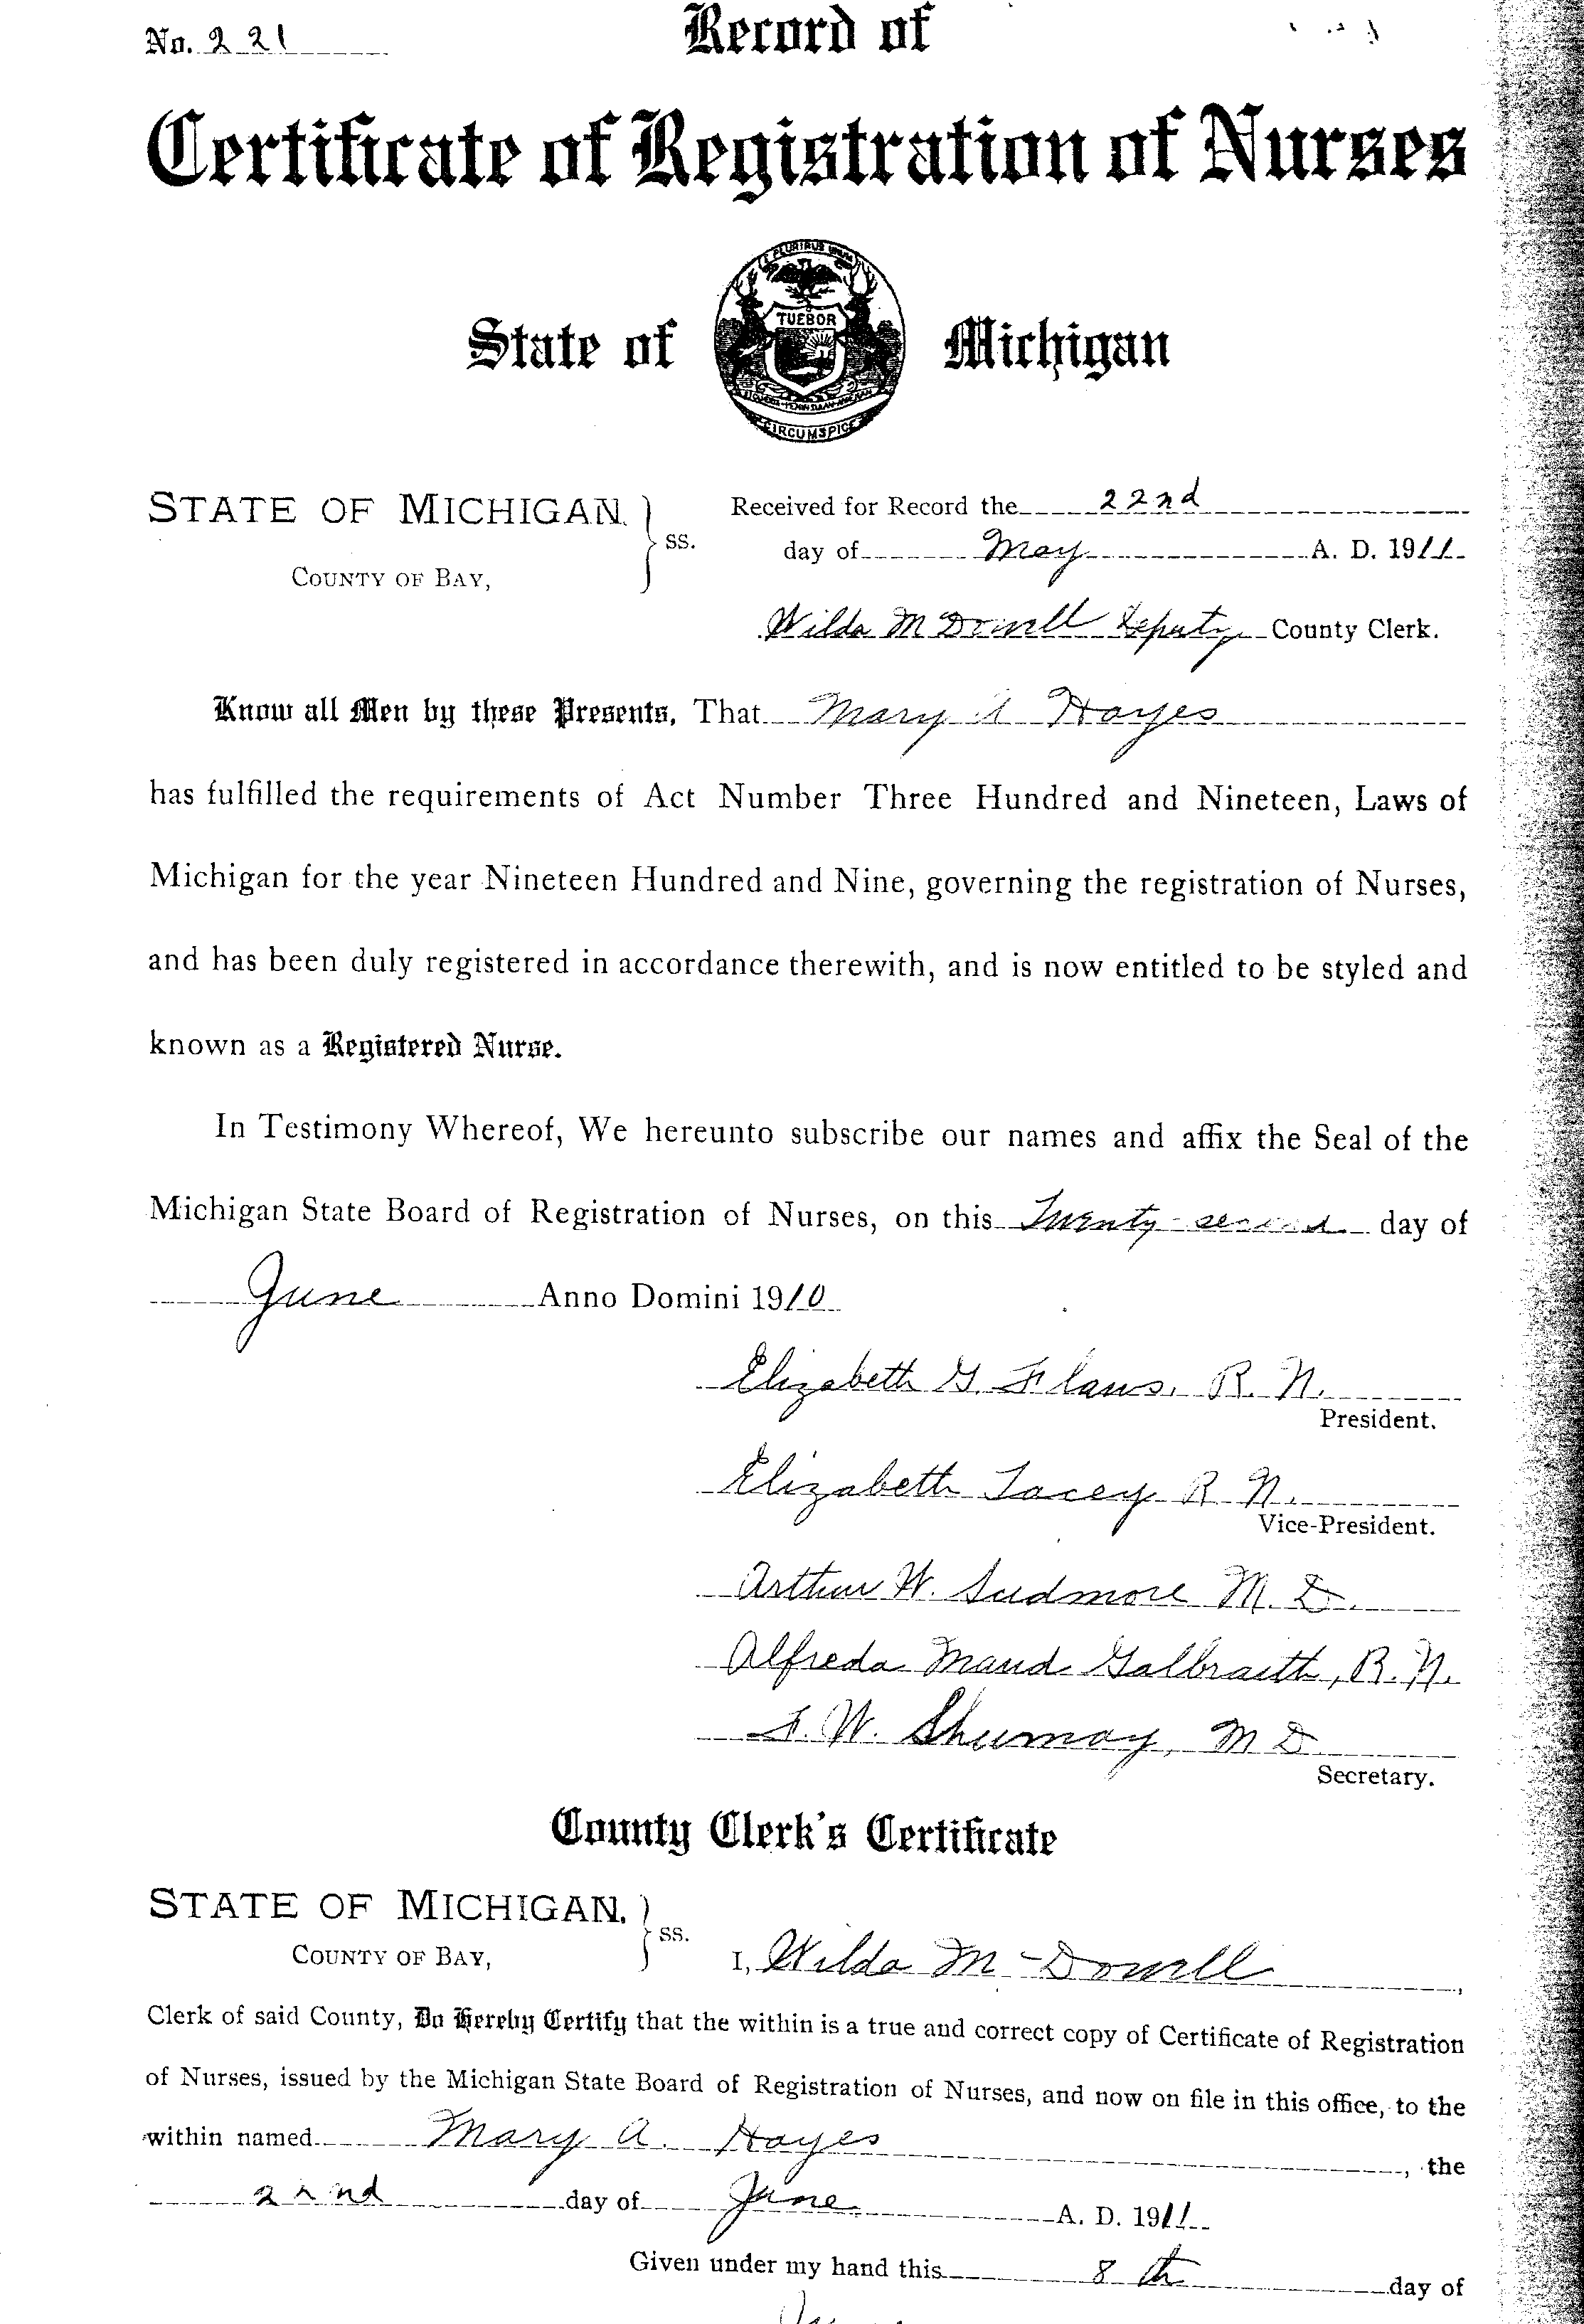 No. 221
Record of
Certificate of Registration of Nurses
E PLURIBUS UNUM
TUEBOR
CIRCUMSPICE
State of Michigan
STATE OF MICHIGAN, } ss.
COUNTY OF BAY,
Received for Record the 22nd
day of May A. D. 1911
Wilda McDowell Deputy County Clerk.
Know all Men by these Presents, That Mary A Hayes
has fulfilled the requirements of Act Number Three Hundred and Nineteen, Laws of
Michigan for the year Nineteen Hundred and Nine, governing the registration of Nurses,
and has been duly registered in accordance therewith, and is now entitled to be styled and
known as a Registered Nurse.
In Testimony Whereof, We hereunto subscribe our names and affix the Seal of the
Michigan State Board of Registration of Nurses, on this Twenty-second day of
June Anno Domini 1910
Elizabeth G. Flaws, R. N.
President.
Elizabeth Tacey R N.
Vice-President.
Arthur W. M. D.
Alfreda Maud Galbraith, R. N.
F. W. Shumay, M D
Secretary.
County Clerk's Certificate
STATE OF MICHIGAN, } ss.
COUNTY OF BAY,
I, Wilda McDowell,
Clerk of said County, Do Hereby Certify that the within is a true and correct copy of Certificate of Registration
of Nurses, issued by the Michigan State Board of Registration of Nurses, and now on file in this office, to the
within named Mary A. Hayes, the
22nd day of June A. D. 1911
Given under my hand this 8th day of